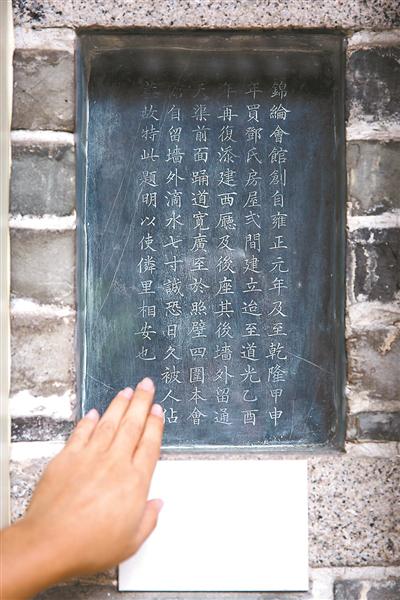 錦綸會館創自雍正元年及至乾隆甲申
年買鄧氏房屋弍間建立迨至道光乙酉
年再復添建西廳及後座其後墻外留通
天渠前面踊道寬廣至於照壁四圍本會
係自留墻外滴水七寸誠恐日久被人佔
蓋故特此題明以使隣里相安也